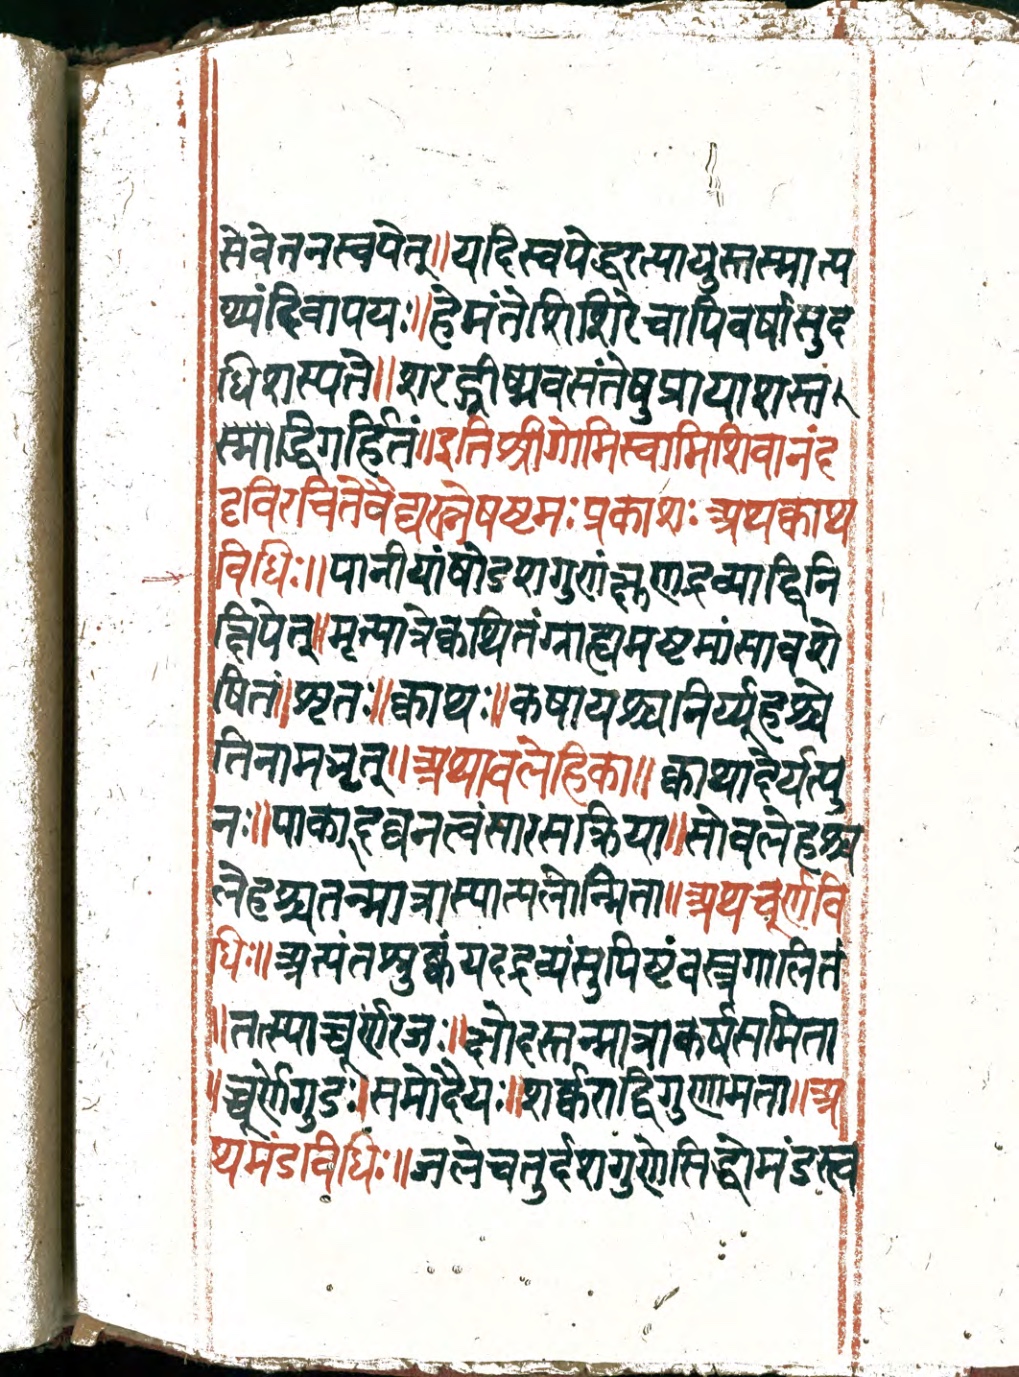 सेवेतनस्वपेत्॥यदिस्वपेद्धरत्पायुस्तस्मात्प
थ्पंदिवापयः॥हेमंतेशिशिरेचापिवर्षासुद
धिशस्पते॥शरद्ग्रीष्मवसंतेषुप्रायाशस्त
स्माद्विगर्हितं॥इतिश्रीगोमिस्वामिशिवानंद
दृविरचितेवैद्यरत्नेषष्टमःप्रकाशःअथक्वाथ
विधिः॥पानीयांषोडशगुणंक्षुणद्रव्याद्विनि
क्षिपेत्॥मृत्पात्रेक्वथितंग्राह्यमष्टमांसावशे
षितं॥शृतः॥क्वाथः॥कषायश्चनिर्य्यूहश्चे
तिनामभृत्॥अथावलेहिका॥क्वाथादेर्यत्पु
नः॥पाकाद्घनत्वंसारसक्रिया॥सोवलेहश्च
लेहश्चतन्मात्रास्पात्पलोन्मिता॥अथचूर्णवि
धिः॥अत्पंतशुष्कंयदद्रव्यंसुपिष्टंवस्त्रगालितं
॥तत्स्पाच्चूर्णंरजः॥क्षोदस्तन्मात्राकर्षसमिता
॥चूर्णेगुडः।समोदेयः॥शर्कराद्विगुणामता॥अ
थमंडविधिः॥जलेचतुर्दशगुणेसिद्धोमंडस्त्व